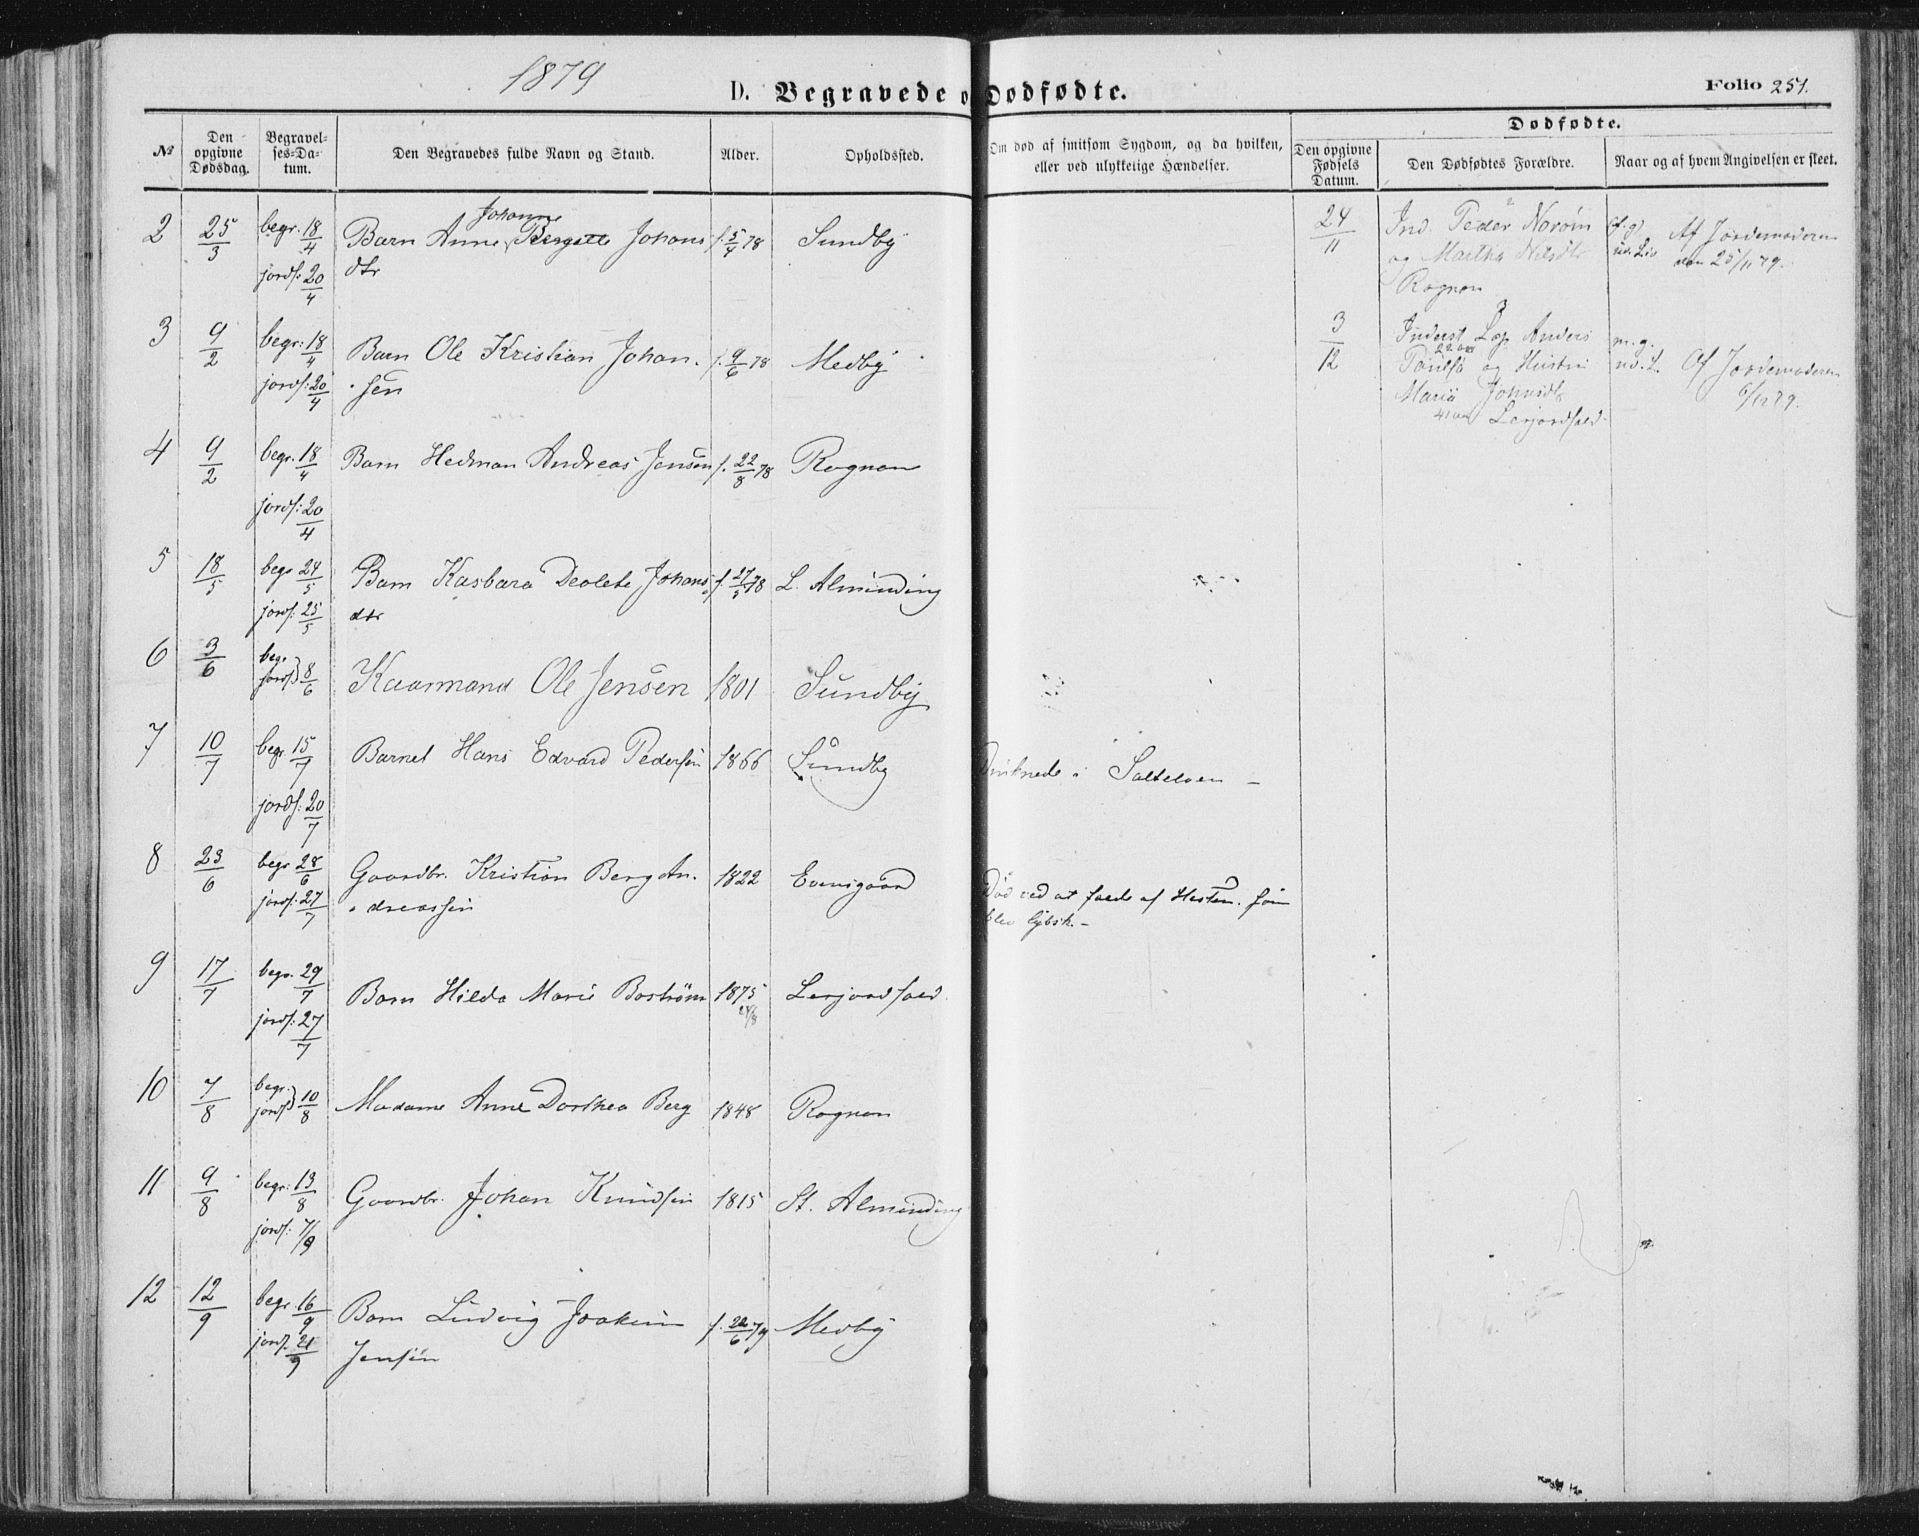 1879
D. Begravede o Dødfødte.
Folio 251.
No
Den opgivne Dødsdag.
Begravelses-Datum.
Den Begravedes fulde Navn og Stand.
Alder.
Opholdssted.
Om død af smitsom Sygdom, og da hvilken,
eller ved ulykkelige Hændelser.
Dødfødte.
Den opgivne Fødsels Datum.
Den Dødfødtes Forældre.
Naar og af hvem Angivelsen er skeet.
2 25/3 begr. 18/4 Barn Anne Johanne Bergette Johans f. 5/4 78 Sundby
jordf: 20/4 dtr
3 9/2 begr: 18/4 Barn Ole Kristian Johan- f. 9/6 78 Medby
jordf: 20/4 sen
4 9/2 begr. 18/4 Barn Hedman Andreas Jensen f. 22/8 78 Rognan
jordf: 20/4
5 18/5 begr 24/5 Barn Kasbara Deolete Johans f. 27/5 78 L. Alminding
jordf. 25/5 dtr
6 3/6 begr. jordf. 8/6 Kaarmand Ole Jensen 1801 Sundby
7 10/7 begr. 15/7 Barnet Hans Edvard Pedersen 1866 Sundby Druknede i Saltelven –
jordf: 20/7
8 23/6 begr 28/6 Gaardbr. Kristian Berg An- 1822 Evensgaard Død ved at falde af Hesten. som
jordf. 27/7 dreassen blev
9 17/7 begr. 29/7 Barn Hilda Marie Boström 1875 24/8 Lerjordfald
jordf: 27/7
10 7/8 begr. jordf 10/8 Madame Anne Dorthea Berg 1848 Rognan
11 9/8 begr: 13/8 Gaardbr. Johan Knudsen 1815 St. Alminding
jordf. 7/9
12 12/9 begr. 16/9 Barn Ludvig Joakim f. 22/6 79 Medby
jordf. 21/9 Jensen
24/11 Ind. Peder Norøin Af Jordemoderen
og Martha Nilsdtr den 25/11 79.
Rognan
3/12 Inderst Anders m.g.
22 aar og Hustru Af Jordemoderen
Maria Johnsdtr 6/12 79.
41 aar Lerjordfald